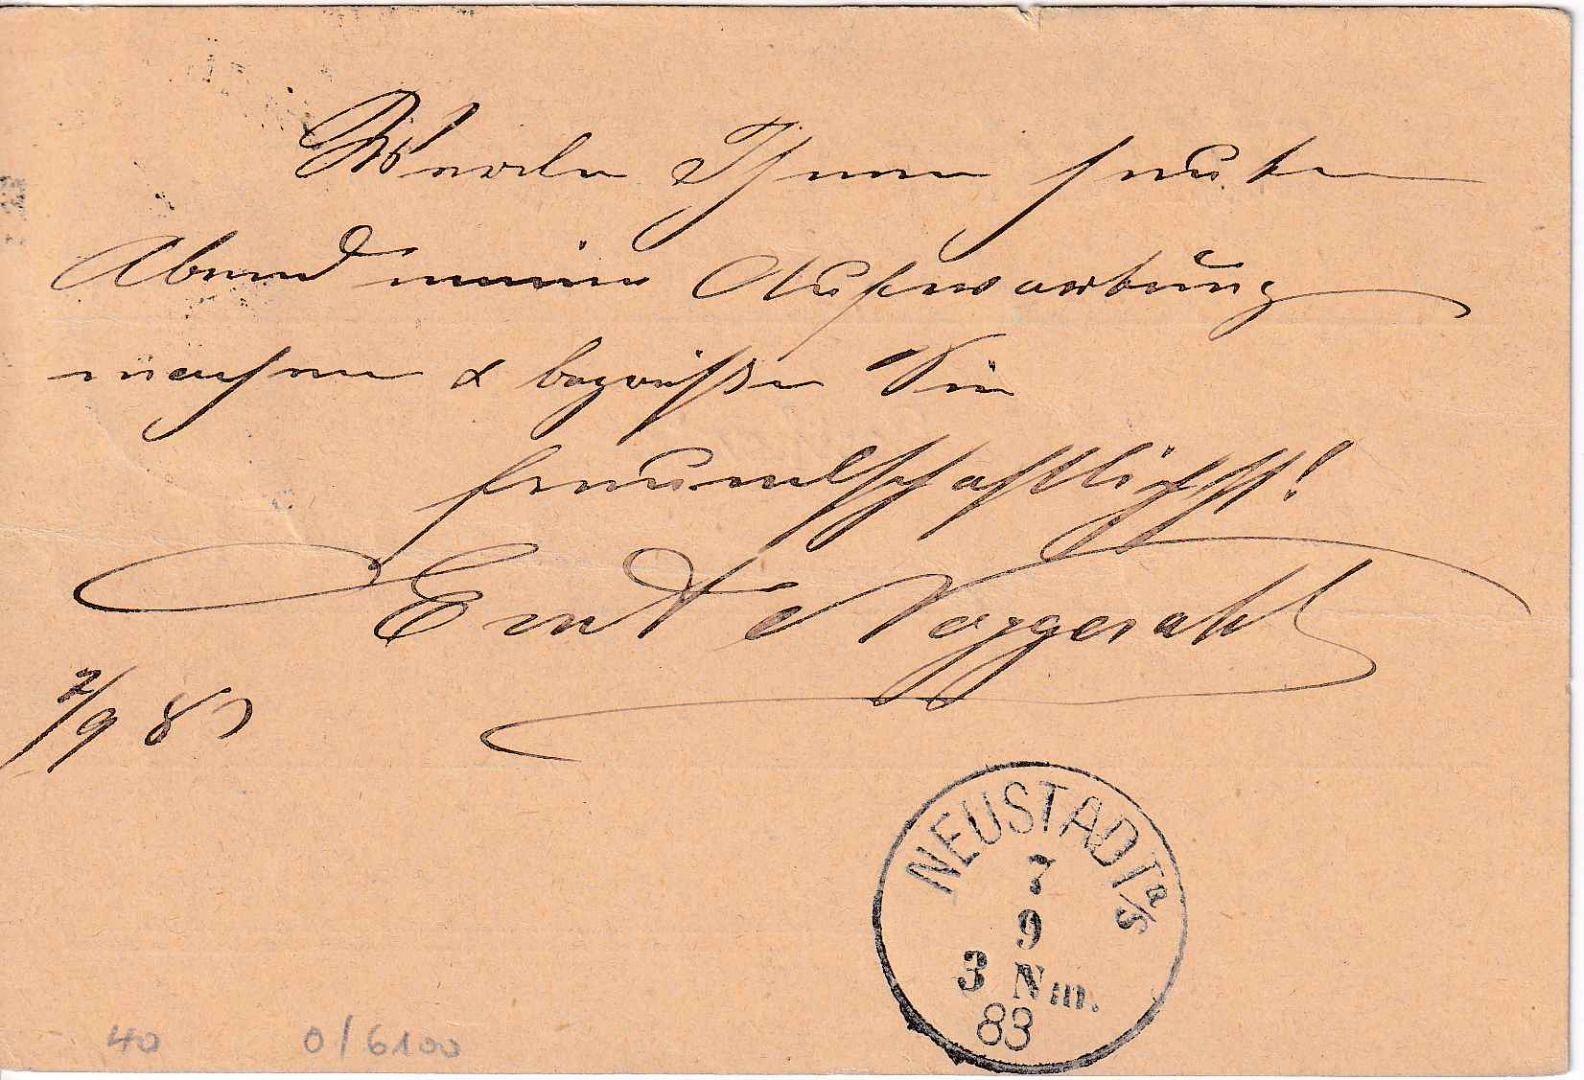 Werde Ihnen heute
Abend meine Aufwartung
machen & begrüße Sie
freundschaftlichst!
Ernst Noggerath
7/9 83
NEUSTADT a/S
7
9
3 Nm.
83
40
0/6100